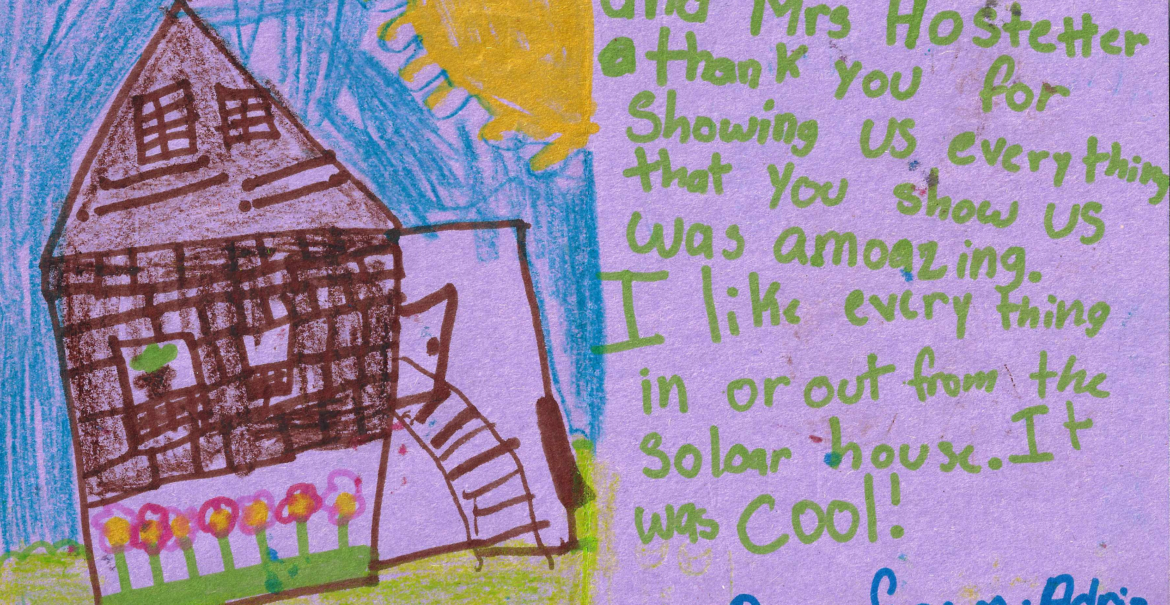 and Mrs Hostetter
thank you for
Showing us every thing
that you show us
was amoazing.
I like every thing
in or out from the
soloar house. It
was Cool!